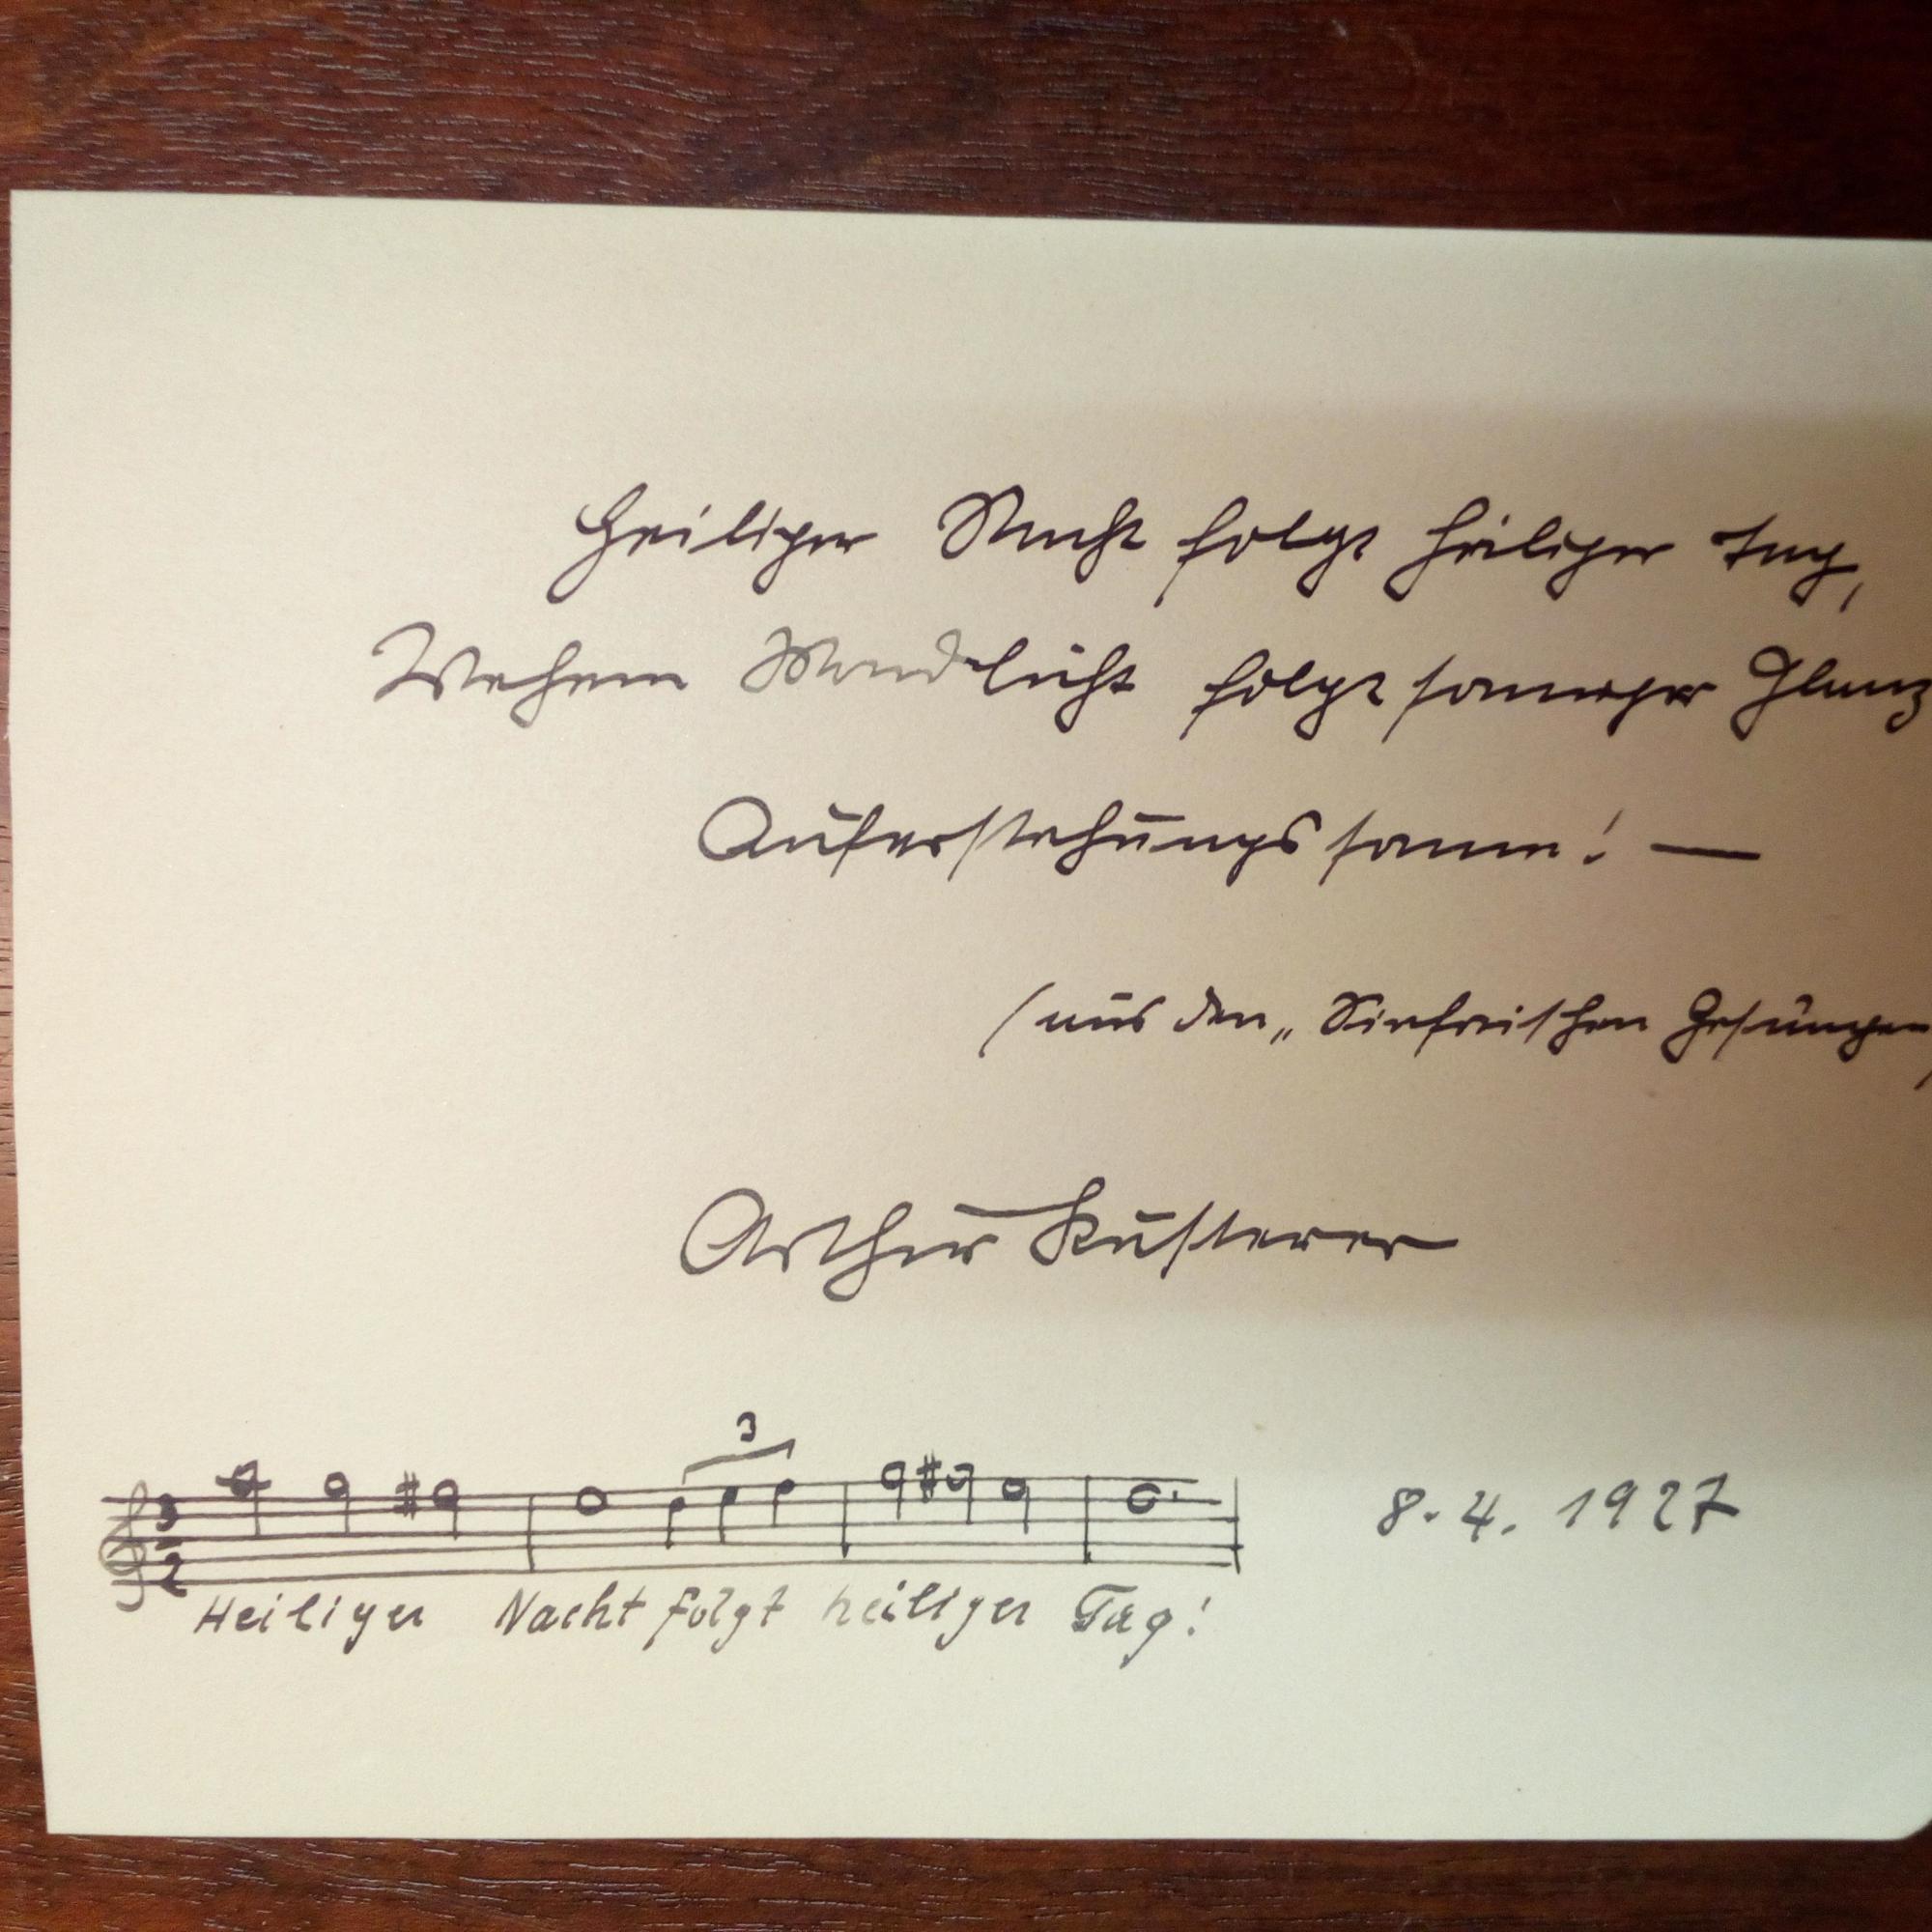 Heiliger Nacht folgt heiliger Tag,
Wehem Mondlicht folgt sonniger Glanz
Auferstehungssonne! —
(aus den „ Gesängen
Arthur Kusterer
3
3
2
8. 4. 1927
Heiliger Nacht folgt heiliger Tag!